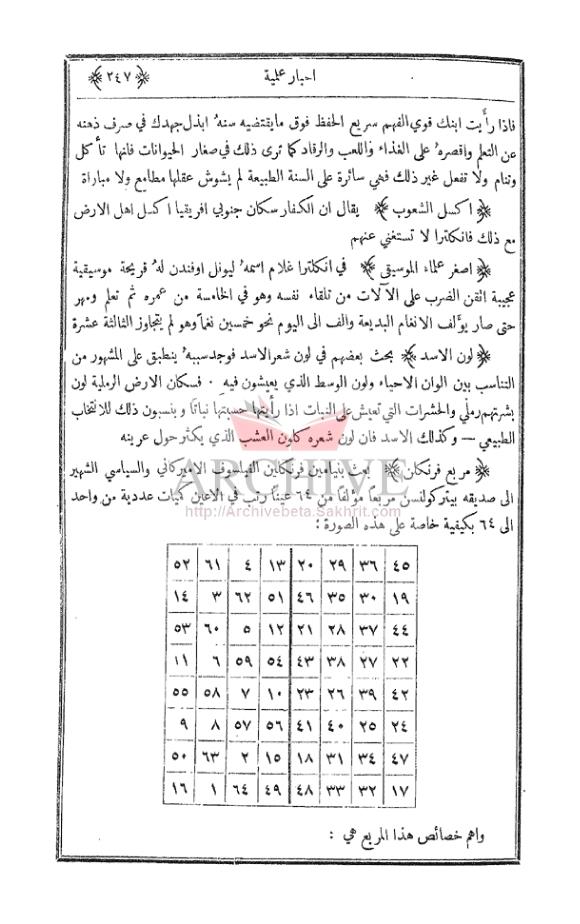 اخبار علمية ﴿٢٤٧﴾
فاذا رأيت ابنك قوي الفهم سريع الحفظ فوق ما يقتضيه سنهُ ابذل جهدك في صرف ذهنه
عن التعلم واقصرهُ على الغذاء واللعب والرقاد كما ترى ذلك في صغار الحيوانات فانها تأكل
وتنام ولا تفعل غير ذلك فهي سائرة على السنة الطبيعة لم يشوش عقلها مطامع ولا مباراة
﴿اكسل الشعوب﴾ يقال ان الكفار سكان جنوبي افريقيا اكسل اهل الارض
مع ذلك فانكلترا لا تستغني عنهم
﴿اصغر علماء الموسيقى﴾ في انكلترا غلام اسمهُ ليونل اوفندن لهُ قريحة موسيقية
عجيبة اتقن الضرب على الآلات من تلقاء نفسه وهو في الخامسة من عمره ثم تعلم ومهر
حتى صار يؤلف الانغام البديعة والف الى اليوم نحو خمسين نغماً وهو لم يتجاوز الثالثة عشرة
﴿لون الاسد﴾ بحث بعضهم في لون شعر الاسد فوجد سببهُ ينطبق على المشهور من
التناسب بين الوان الاحياء ولون الوسط الذي يعيشون فيه . فسكان الارض الرملية لون
بشرتهم رملي والحشرات التي تعيش على النبات اذا رأيتها حسبتها نباتاً وينسبون ذلك للانتخاب
الطبيعي — وكذلك الاسد فان لون شعره كلون العشب الذي يكثر حول عرينه
﴿مربع فرنكلن﴾ بعث بنيامين فرنكلين الفيلسوف الاميركاني والسياسي الشهير
الى صديقه بيتر كولنسن مربعاً مؤلفاً من ٦٤ عيناً رتب في الاعين كميات عددية من واحد
الى ٦٤ بكيفية خاصة على هذه الصورة :
ARCHIVE
http://Archivebeta.Sakhrit.com
٥٢ ٦١ ٤ ١٣ ٢٠ ٢٩ ٣٦ ٤٥
١٤ ٣ ٦٢ ٥١ ٤٦ ٣٥ ٣٠ ١٩
٥٣ ٦٠ ٥ ١٢ ٢١ ٢٨ ٣٧ ٤٤
١١ ٦ ٥٩ ٥٤ ٤٣ ٣٨ ٢٧ ٢٢
٥٥ ٥٨ ٧ ١٠ ٢٣ ٢٦ ٣٩ ٤٢
٩ ٨ ٥٧ ٥٦ ٤١ ٤٠ ٢٥ ٢٤
٥٠ ٦٣ ٢ ١٥ ١٨ ٣١ ٣٤ ٤٧
١٦ ١ ٦٤ ٤٩ ٤٨ ٣٣ ٣٢ ١٧
واهم خصائص هذا المربع هي :